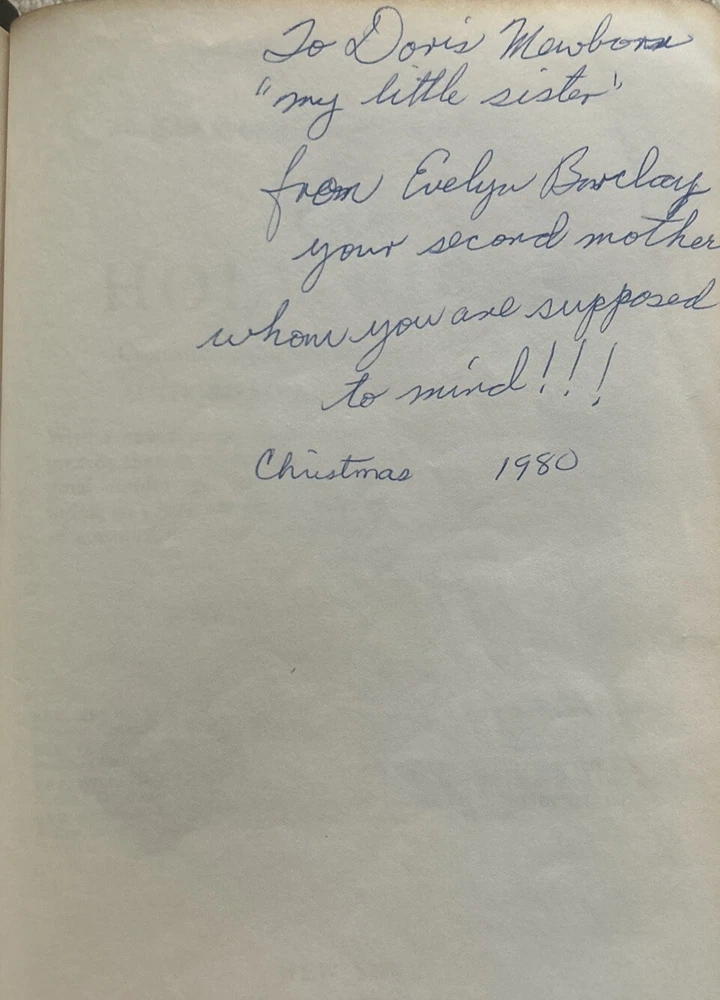 To Doris Mewborn
"my little sister"
from Evelyn Barclay
your second mother
whom you are supposed
to mind!!!
Christmas 1980